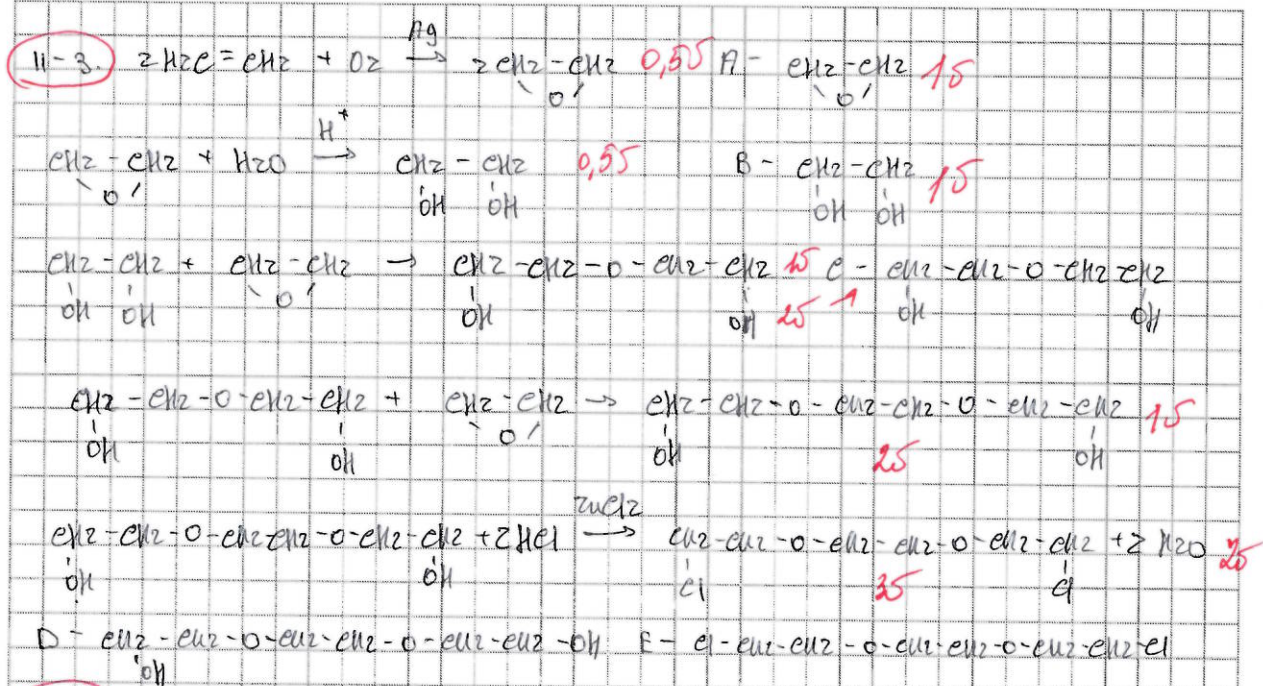 11-3. 2H2C=CH2 + O2 →Ag 2CH2-CH2 0,5б A- CH2-CH2 1б
\ O / \ O /
CH2-CH2 + H2O →H+ CH2-CH2 0,5б B- CH2-CH2 1б
\ O / OH OH OH OH
CH2-CH2 + CH2-CH2 → CH2-CH2-O-CH2-CH2 1б C- CH2-CH2-O-CH2-CH2
OH OH \ O / OH OH 2б 1 OH OH
CH2-CH2-O-CH2-CH2 + CH2-CH2 → CH2-CH2-O-CH2-CH2-O-CH2-CH2 1б
OH OH \ O / OH 2б OH
CH2-CH2-O-CH2-CH2-O-CH2-CH2+2HCl →ZnCl2 CH2-CH2-O-CH2-CH2-O-CH2-CH2 +2 H2O 2б
OH OH Cl 3б Cl
D- CH2-CH2-O-CH2-CH2-O-CH2-CH2-OH E- Cl-CH2-CH2-O-CH2-CH2-O-CH2-CH2-Cl
OH